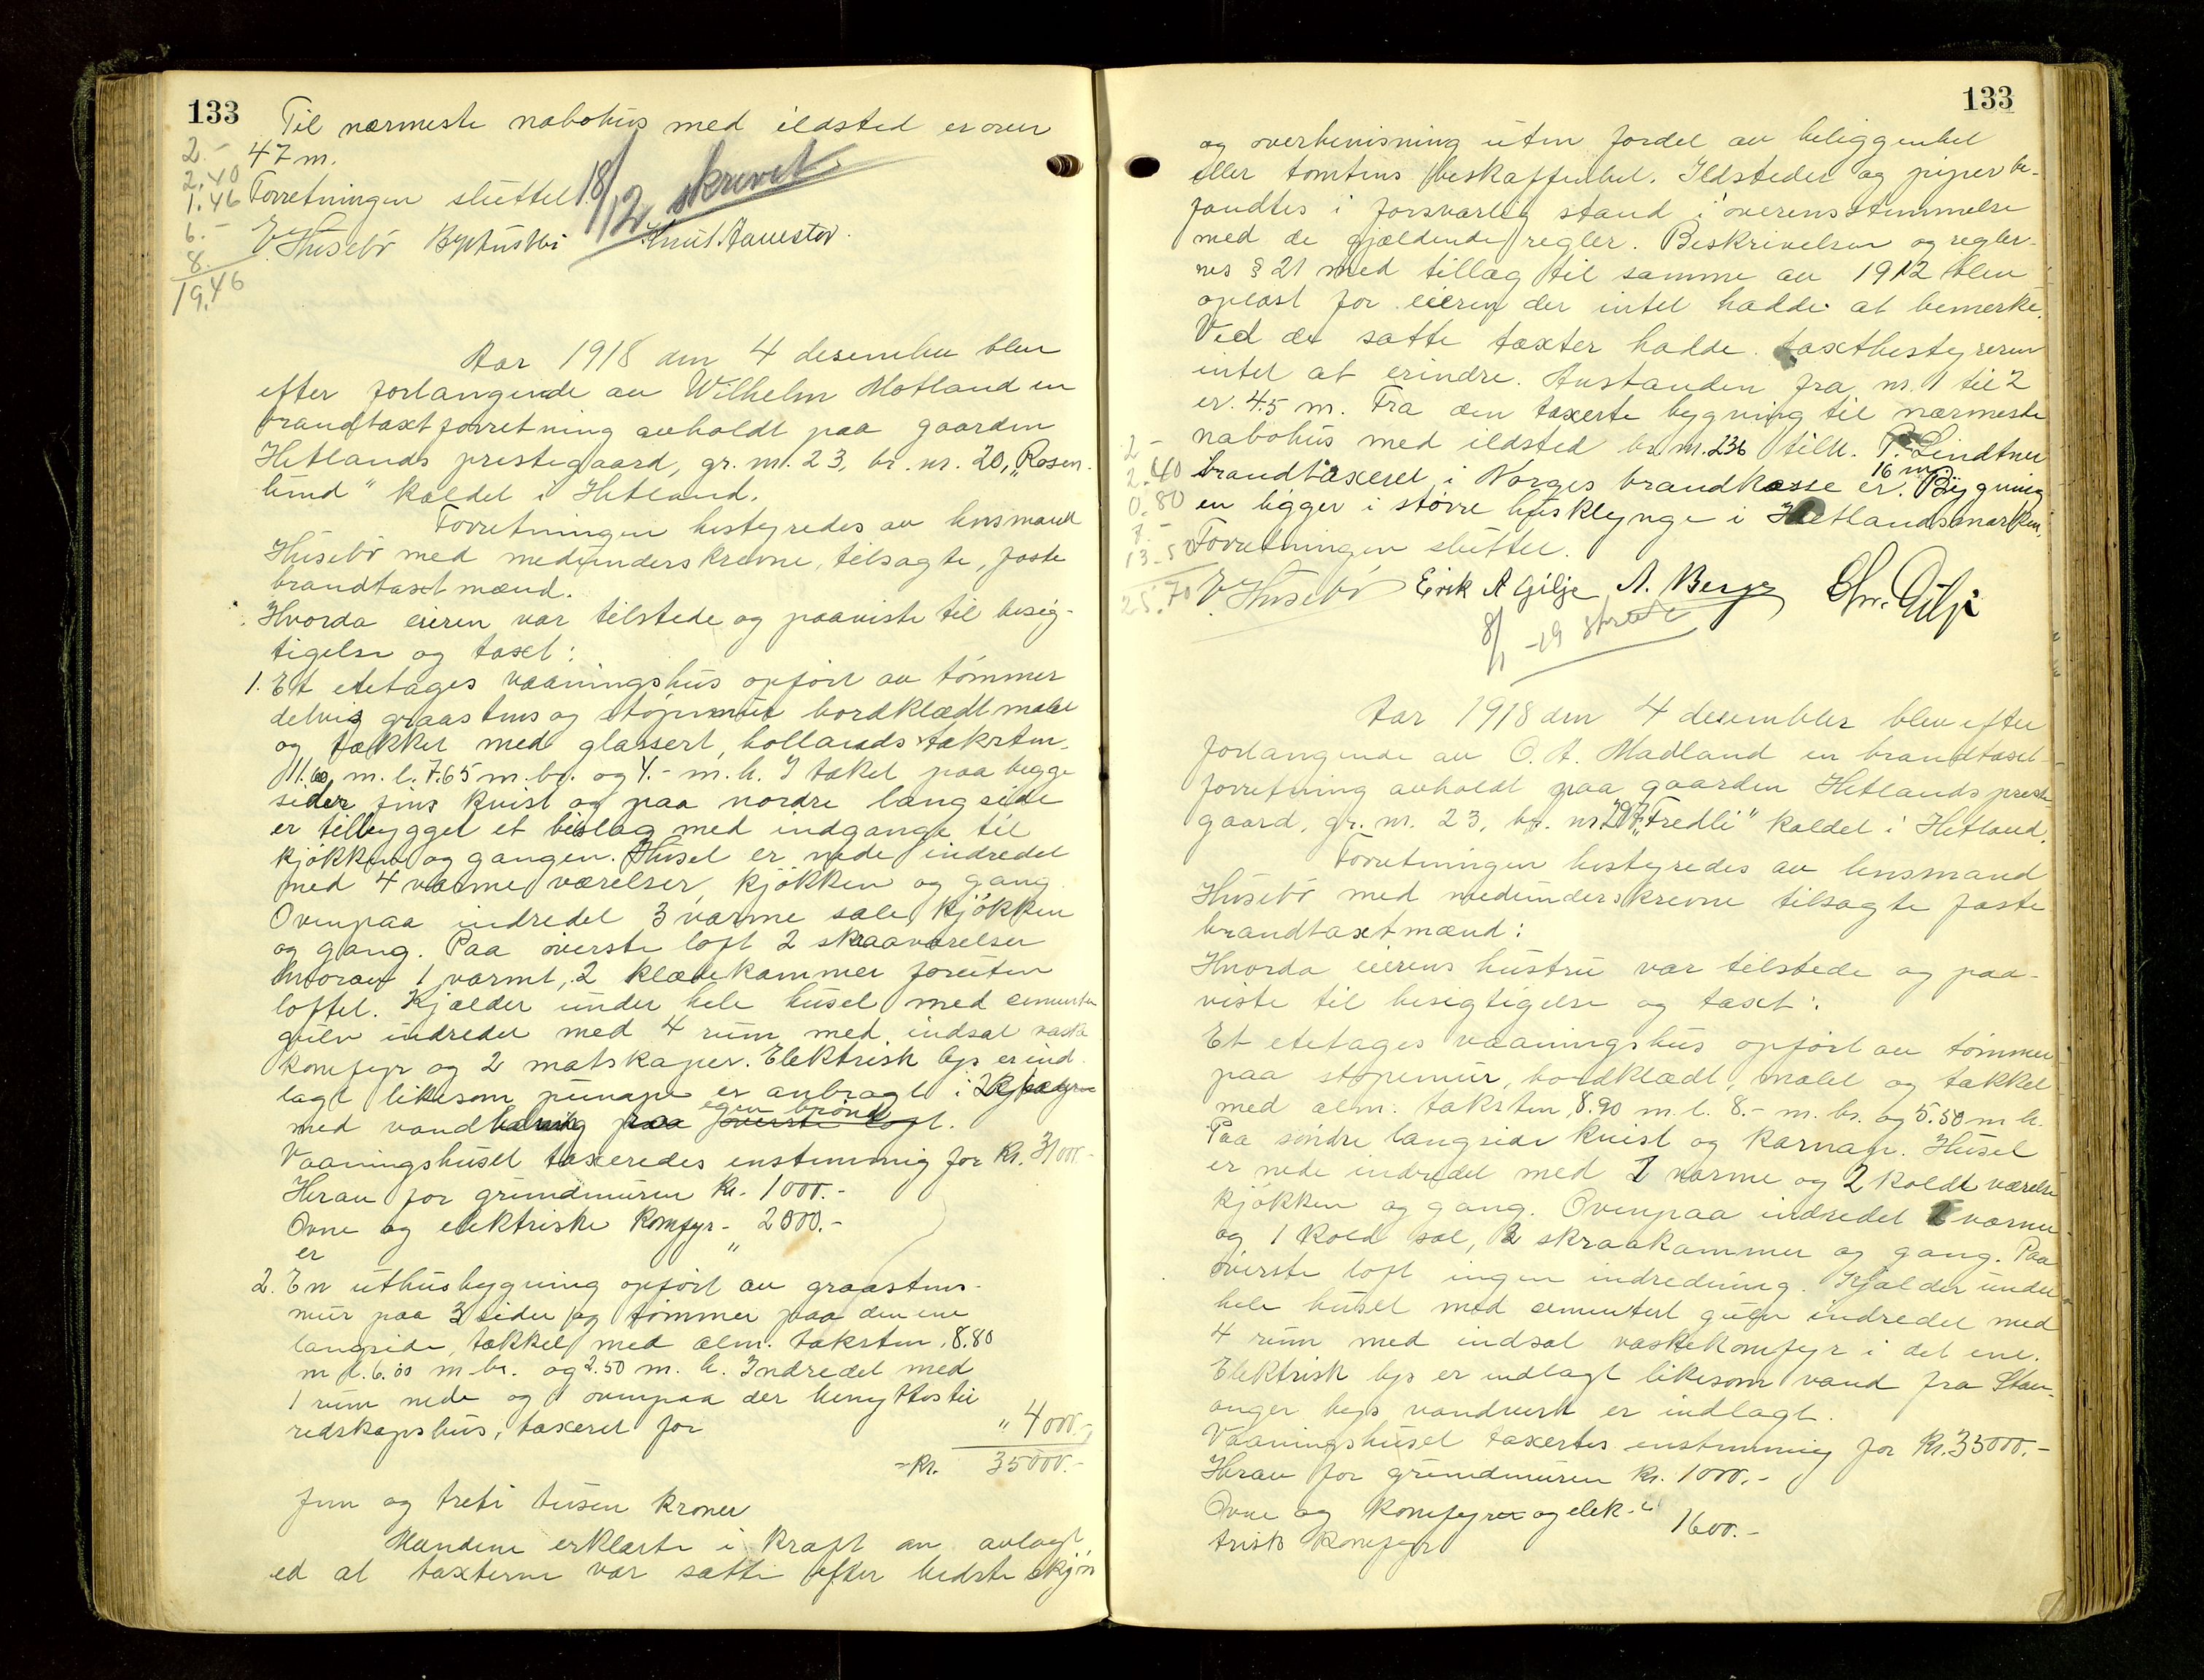 133
Til nærmeste nabohus med ildsted er over
47 m.
Forretningen sluttet.
18/12 skrevet
E. Husebö
2.-
2.40
1.46
6.-
8.
19,46
Aar 1918 den 4 desember blev
efter forlangende av Wilhelm Motland en
brandtaxtforretning avholdt paa gaarden
Hetlands prestegaard, gr. nr. 23, br. nr. 20, "Rosen-
lund" kaldet i Hetland.
Forretningen bestyredes av lensmand
Husebö med medunderskrevne, tilsagte, faste
brandtaxtmænd.
Hvorda eieren var tilstede og paaviste til besig-
tigelse og taxt:
1. Et etetages vaaningshus opført av tömmer
delvis graastens og støpemur bordklædt malet
og tækket med glassert, hollandsk taksten.
11.60 m. l. 7.65 m. br. og 4.- m. h. I taket paa begge
sider fins kvist og paa nordre langside
er tilbygget et bislag med indgange til
kjökken og gangen. Huset er nede indredet
med 4 varme værelser, kjökken og gang
Ovenpaa indredet 3 varme sale, kjökken
og gang. Paa överste loft 2 skraaværelser
hvorav 1 varmt, 2 klædekammer foruten
loftet. Kjælder under hele huset med cementen
gulv indredet med 4 rum med indsat vaske
komfyr og 2 matskaper. Elektrisk lys er ind-
lagt likesom pumpe er anbragt i 2
med vand egen brönd
Vaaningshuset taxeredes enstemmig for Kr. 31000.-
Herav for grundmuren Kr. 1000.-
Ovne og elektriske komfyr - 2000.-
er "
2. En uthusbygning opført av graastens-
mur paa 3 sider og tömmer paa den ene
langside, tækket med alm. taksten, 8.80
m l. 6.00 m br. og 2.50 m. h. Indredet med
1 rum nede og 1 ovenpaa der benyttes til
redskapshus, taxeret for " 4000.-
= Kr. 35000.-
fem og treti tusen kroner
Mændene erklærte i kraft av avlagt
ed at taxterne var satte efter bedste skjön
133
og overbevisning uten fordel av beliggenhet
eller tomtens beskaffenhet. Ildsteder og piper be-
fandtes i forsvarlig stand i overensstemmelse
med de gjældende regler. Beskrivelsen og regler-
nes § 21 med tillæg til samme av 1912 blev
oplæst for eieren der intet hadde at bemerke.
Ved de satte taxter hadde taxtbestyreren
intet at erindre. Avstanden fra nr. 1 til 2
er 4.5 m. Fra den taxerte bygning til nærmeste
nabohus med ildsted br. nr. 236 tilh. P. Lindtner
brandtaxeret i Norges brandkasse er 16 m. Bygning
en ligger i større husklynge i Hetlandsmarken.
Forretningen sluttet.
2 -
2.40
0.80
7.-
13.50
25.70
E. Husebö Eirik A Gilje A. Berge
8/1 -19
Aar 1918 den 4 desember blev efter
forlangende av O. A. Madland en brandtaxt-
forretning avholdt paa gaarden Hetlands preste-
gaard, gr. nr. 23, br. nr. 207, "Fredli" kaldet i Hetland.
Forretningen bestyredes av lensmand
Husebö med medunderskrevne tilsagte faste
brandtaxtmænd:
Hvorda eierens hustru var tilstede og paa-
viste til besigtigelse og taxt:
Et etetages vaaningshus opført av tömmer
paa støpemur, bordklædt, malet og tækket
med alm. taksten, 8.90 m. l. 8.- m. br. og 5.50 m h.
Paa söndre langside kvist og karnap. Huset
er nede indredet med 1 varme og 2 koldt værelse
kjökken og gang. Ovenpaa indredet 2 varme
og 1 kold sal, 2 skraakammer og gang. Paa
överste loft ingen indredning. Kjælder under
hele huset med cementert gulv indredet med
4 rum med indsat vaskekomfyr i det ene.
Elektrisk lys er indlagt likesom vand fra Stav-
anger bys vandverk er indlagt.
Vaaningshuset taxertes enstemmig for Kr. 35000.-
Herav for grundmuren Kr. 1000.-
Ovne og komfyrer og elek- "
trisk komfyr 1600.-